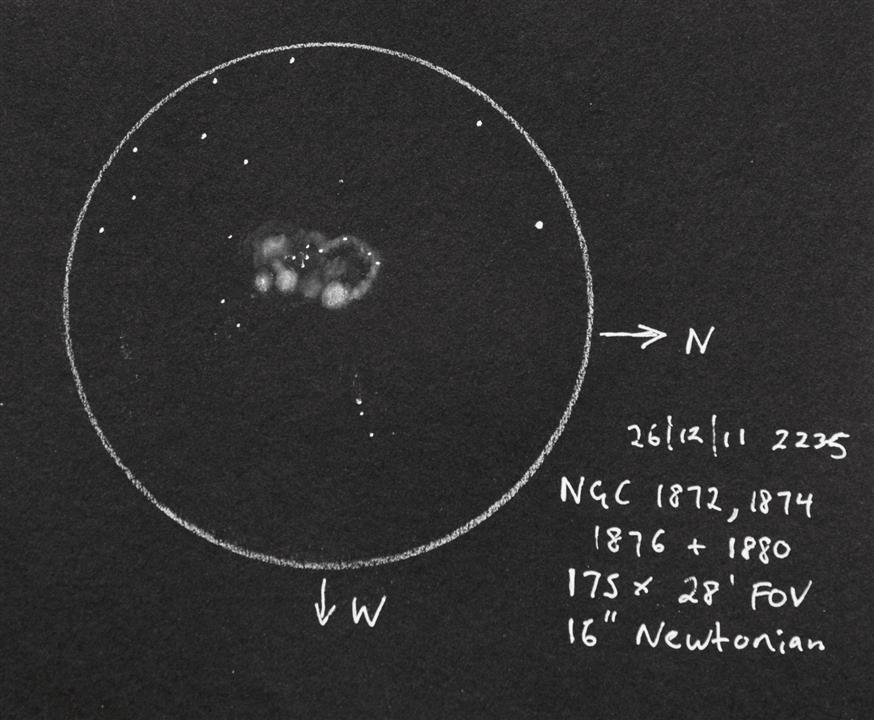 N
26/12/11 2235
NGC 1872, 1874
1876 + 1880
175 x 28' FOV
16" Newtonian
W